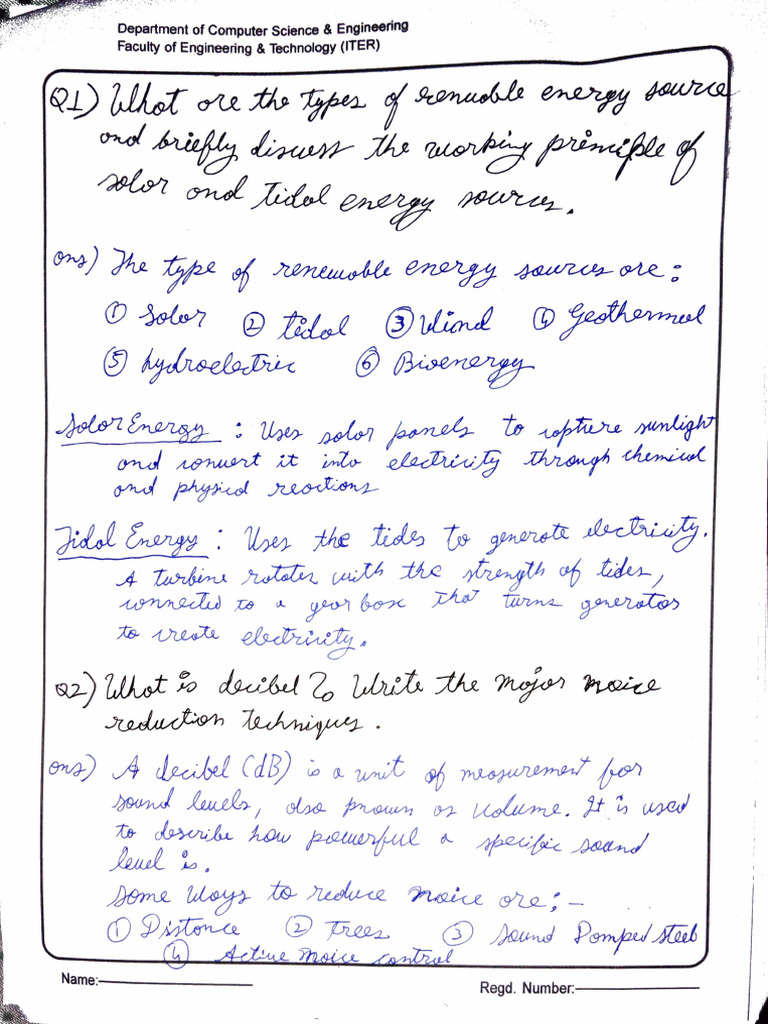 Department of Computer Science & Engineering
Faculty of Engineering & Technology (ITER)
Q1) What are the types of renuable energy source
and briefly discuss the working principle of
solar and tidal energy sources.
ans) The type of renewable energy sources are:
① Solar ② tidal ③ Wind ④ Geothermal
⑤ hydroelectric ⑥ Bioenergy
Solar Energy : Uses solar panels to capture sunlight
and convert it into electricity through chemical
and physical reactions
Tidal Energy : Uses the tides to generate electricity.
A turbine rotates with the strength of tides,
connected to a gear box that turns generator
to create electricity.
Q2) What is decibel? Write the major noice
reduction techniques.
ans) A decibel (dB) is a unit of measurement for
sound levels, also known as volume. It is used
to describe how powerful a specific sound
level is.
Some ways to reduce noice are:-
① Distance ② Trees ③ Sound Damped steel
④ Active noice control
Name:
Regd. Number: